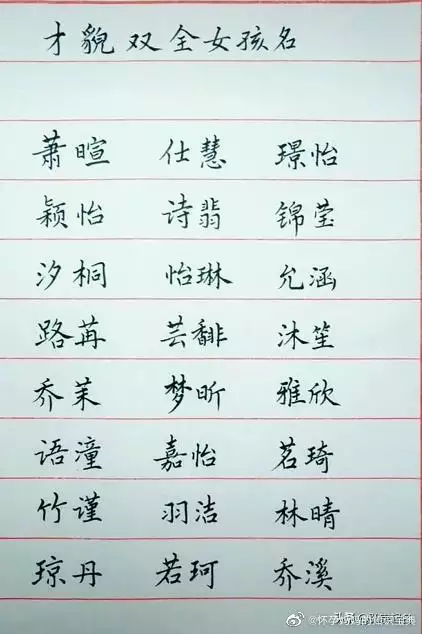 才貌双全女孩名
萧暄 仕慧 璟怡
颖怡 诗翡 锦莹
汐桐 怡琳 允涵
路苒 芸馡 沐笙
乔茉 梦昕 雅欣
语潼 嘉怡 茗琦
竹谨 羽洁 林晴
琼丹 若珂 乔溪